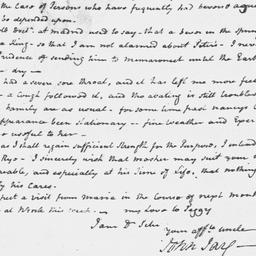 the Case of Persons who have frequently had nervous
be depended upon.
at Madrid used to say that a Fever in the Spring
a King - so that I am not alarmed about Peter's. I never
Prudence of sending him to Mamaroneck until the Earth
dry —
had a severe sore throat, and it has left me more feeble
a cough followed it, and the ... is still troublesome
family are as usual - for some time past nancys
appearance been Stationary — fine weather and Exer
useful to her -
as I shall regain sufficient Strength for the Purpose, I intend
Rye. I sincerely wish that Masher may suit your
and especially at his Time of Life, that nothing
his Cares.
expect a visit from Maria in the course of next month
at Work this week — my Love to Peggy
I am Dr
your affte uncle
John Jay —